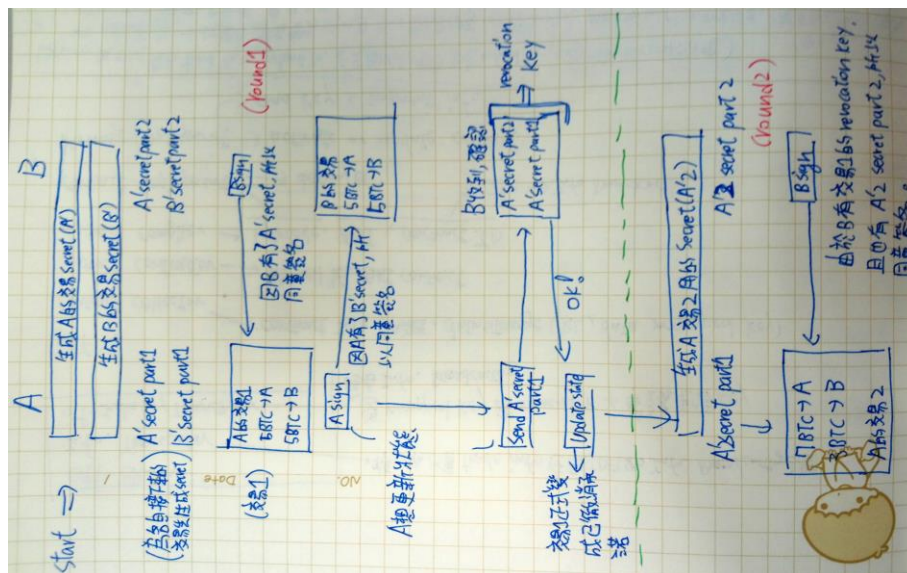 A
B
Start ⇒
生成A的交易secret(A')
生成B的交易secret(B')
(為各自接下來的
交易先生成secret)
A'secret part1
B'secret part1
A'secret part2
B'secret part2
NO.
Date
(交易1)
A的交易1
5BTC→A
5BTC→B
B'sign
(round1)
因B有了A'secret,所以
同意簽名
A sign
因A有了B'secret,所
以同意簽名
B的交易
5BTC→A
5BTC→B
A想更新狀態
Send A'secret
part1
B收到,確認
A'secret part2
A'secret part1
revocation
key
OK!
Update state
交易1正式變
成已撤消承
諾
生成A交易2用的secret(A'2)
A'secret part1
A'2 secret part2
(round2)
7BTC→A
3BTC→B
A的交易2
B'sign
由於B有交易1的revocation key,
且也有A'2 secret part2,所以
同意簽名。